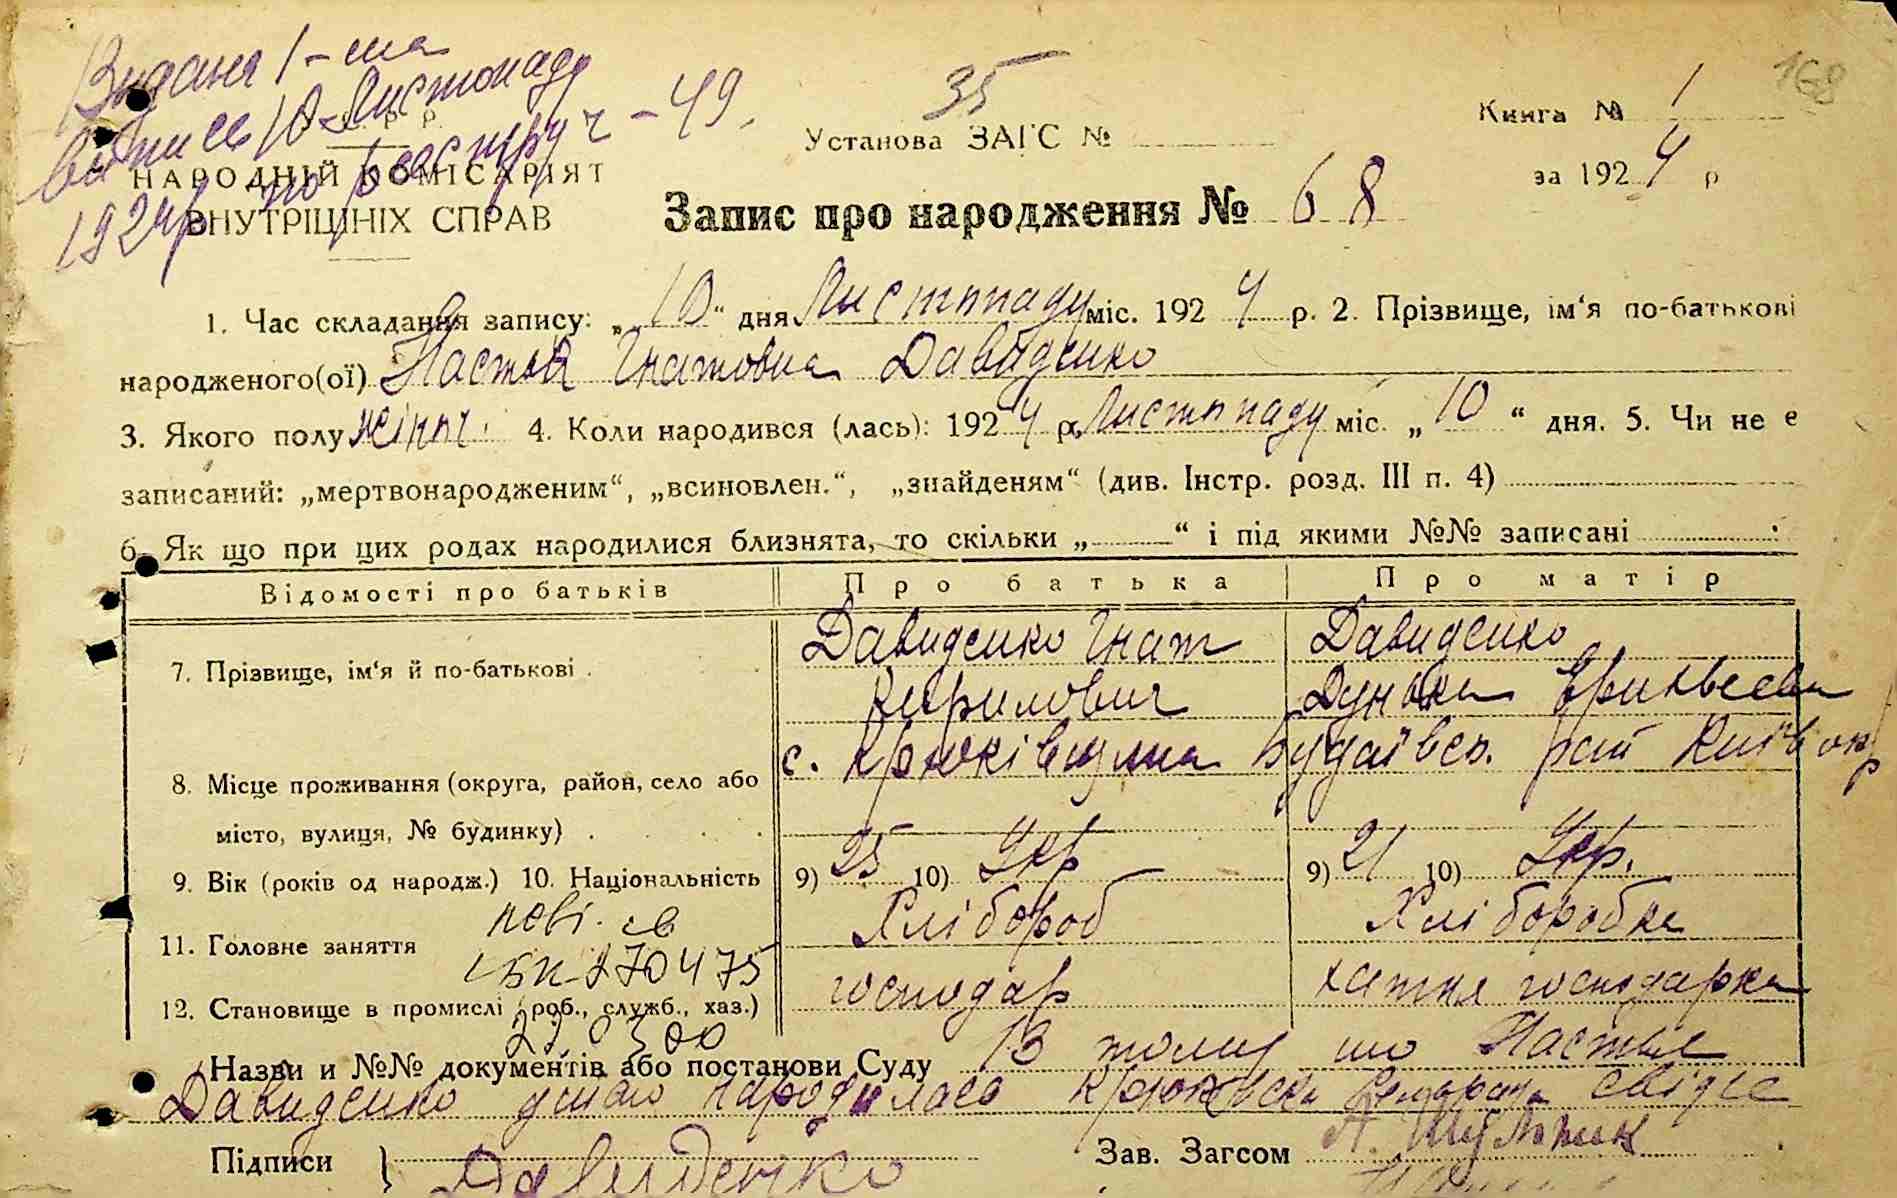 168
Видана 1-ша
випись 10 Листопаду
1924 р по реєстру ч - 49.
У. С. Р. Р.
НАРОДНІЙ КОМІСАРІЯТ
ВНУТРІШНІХ СПРАВ
Установа ЗАГС № 35
Книга № 1
за 1924 р
Запис про народження № 68
1. Час складання запису: „10“ дня Листопаду міс. 1924 р. 2. Прізвище, ім‘я по-батькові
народженого(ої) Настья Гнатовна Давиденко
3. Якого полу жіноч. 4. Коли народився (лась): 1924 р. Листопаду міс. „10“ дня. 5. Чи не є
записаний: „мертвонародженим“, „всиновлен.“, „знайденям“ (див. Інстр. розд. III п. 4)
6. Як що при цих родах народилися близнята, то скільки „ “ і під якими №№ записані
Відомості про батьків Про батька Про матір
7. Прізвище, ім‘я й по-батькові . Давиденко Гнат Давиденко
Кирилович Дунька
8. Місце проживання (округа, район, село або с. Крюківщина Будаївсь. рай Київ окр
місто, вулиця, № будинку) .
9. Вік (років од народж.) 10. Національність 9) 25 10) Укр 9) 21 10) Укр.
11. Головне заняття Хлібороб Хліборобка
пові. св
270475
12. Становище в промислі (роб., служб., хаз.) господар хатня господарка
230300
Назви и №№ документів або постанови Суду В тому що Настья
Давиденко народилась свідче
Підписи } Давиденко Зав. Загсом